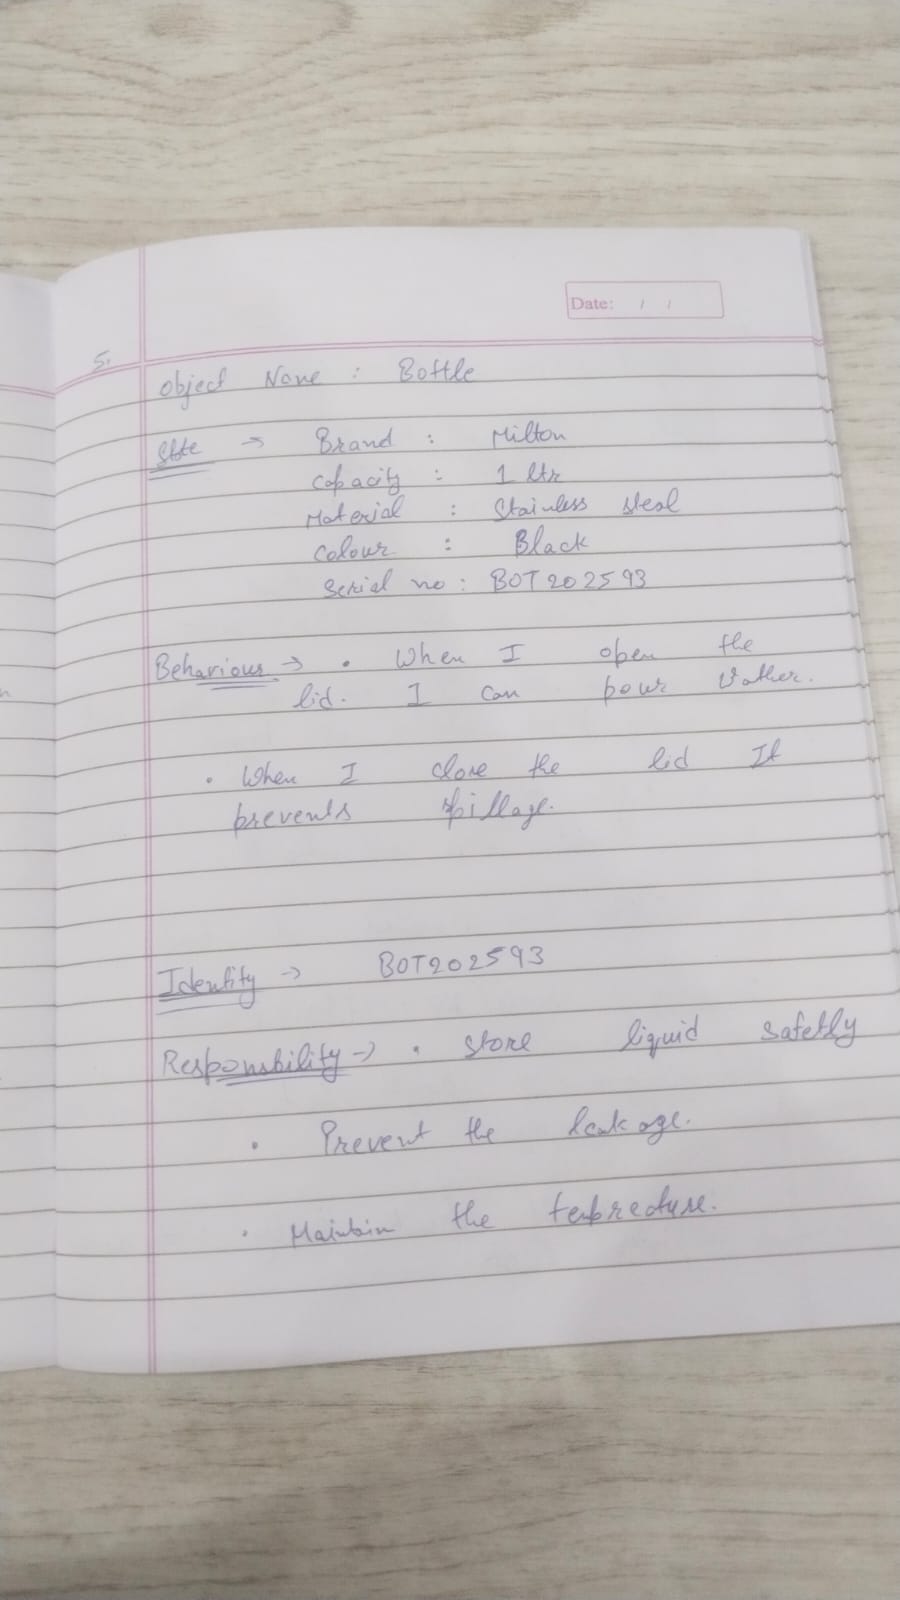 Date: / /
5.
Object Name : Bottle
State → Brand : Milton
Capacity : 1 ltr
Material : Stainless steal
Colour : Black
Serial no : BOT202593
Behaviour → • When I open the
lid. I can pour Vather.
• When I close the lid It
prevents spillage.
Identity → BOT202593
Responsbility → • Store liquid safetly
• Prevent the leakage.
• Maintain the tenbreture.